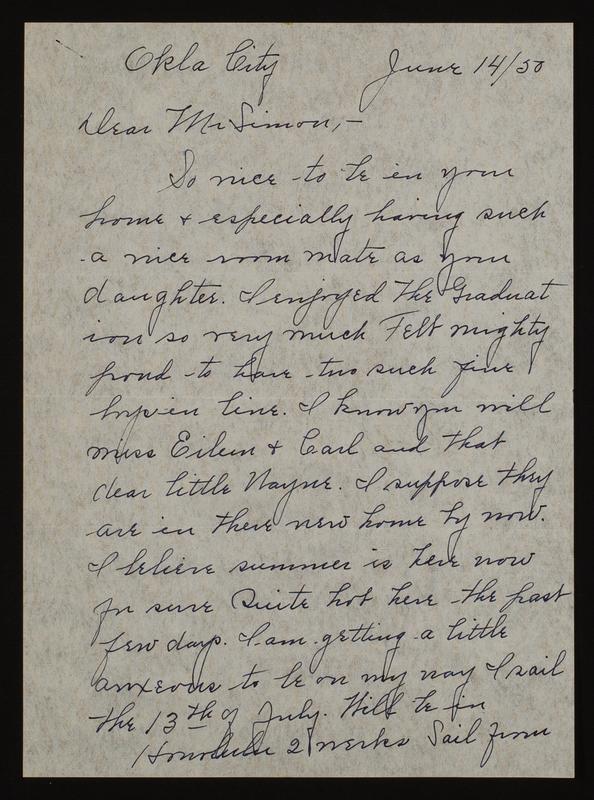 Okla City June 14/50
Dear Mr Simon, –
So nice to be in your
home & especially having such
a nice room mate as your
daughter. I enjoyed the Graduat
ion so very much Felt mighty
proud to have two such fine
boys in line. I know you will
miss Eileen & Carl and that
dear little Wayne. I suppose they
are in there new home by now.
I believe summer is here now
for sure Quite hot here the past
few days. I am getting a little
anxeous to be on my way I sail
the 13th of July. Will be in
Honolulu 2 weeks Sail from